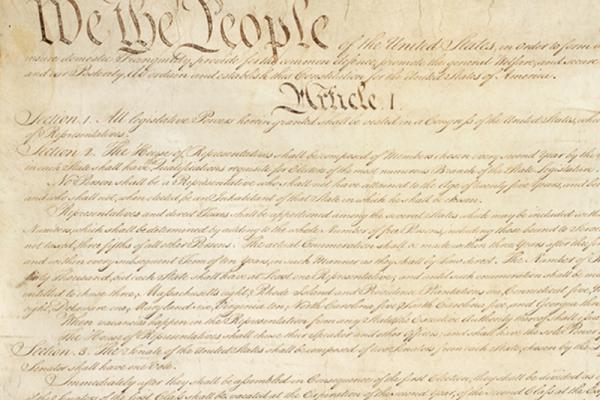 We the People of the United States, in Order to form a
insure domestic Tranquility, provide for the common defence, promote the general Welfare, and secure
and our Posterity, do ordain and establish this Constitution for the United States of America.
Article. I.
Section. 1. All legislative Powers herein granted shall be vested in a Congress of the United States, which
of Representatives.
Section. 2. The House of Representatives shall be composed of Members chosen every second Year by the
in each State shall have the Qualifications requisite for Electors of the most numerous Branch of the State Legislature.
No Person shall be a Representative who shall not have attained to the Age of twenty five Years, and been
and who shall not, when elected, be an Inhabitant of that State in which he shall be chosen.
Representatives and direct Taxes shall be apportioned among the several States which may be included within
Numbers, which shall be determined by adding to the whole Number of free Persons, including those bound to
not taxed, three fifths of all other Persons. The actual Enumeration shall be made within three Years after the
and within every subsequent Term of ten Years, in such Manner as they shall by Law direct. The Number of
thirty Thousand, but each State shall have at Least one Representative; and until such enumeration shall be
entitled to chuse three, Massachusetts eight, Rhode-Island and Providence Plantations one, Connecticut five,
eight, Delaware one, Maryland six, Virginia ten, North Carolina five, South Carolina five, and Georgia three.
When vacancies happen in the Representation from any State, the Executive Authority thereof shall
The House of Representatives shall chuse their Speaker and other Officers; and shall have the sole Power of
Section. 3. The Senate of the United States shall be composed of two Senators from each State, chosen by the
Senator shall have one Vote.
Immediately after they shall be assembled in Consequence of the first Election, they shall be divided as
of the Senators of the first Class shall be vacated at the Expiration of the second Year, of the second Class at the